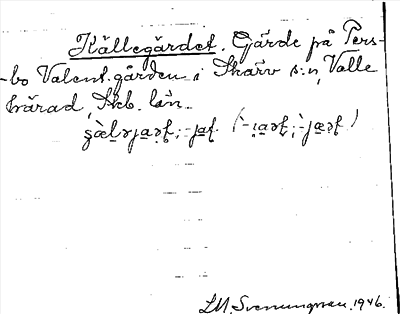 Källegärdet. Gärde på Pers-
-bo Valent.gården i Skärv s:n, Valle
härad, Skb. län.
LM. Svenungsson. 1946.